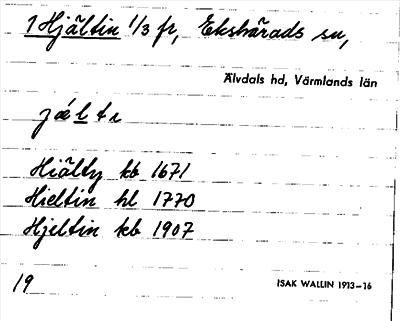 1 Hjältin 1/3 fr, Ekshärads sn,
Älvdals hd, Värmlands län
jæ̀lti
Hiälty kb 1671
Hieltin hl 1770
Hjeltin kb 1907
19
ISAK WALLIN 1913-16